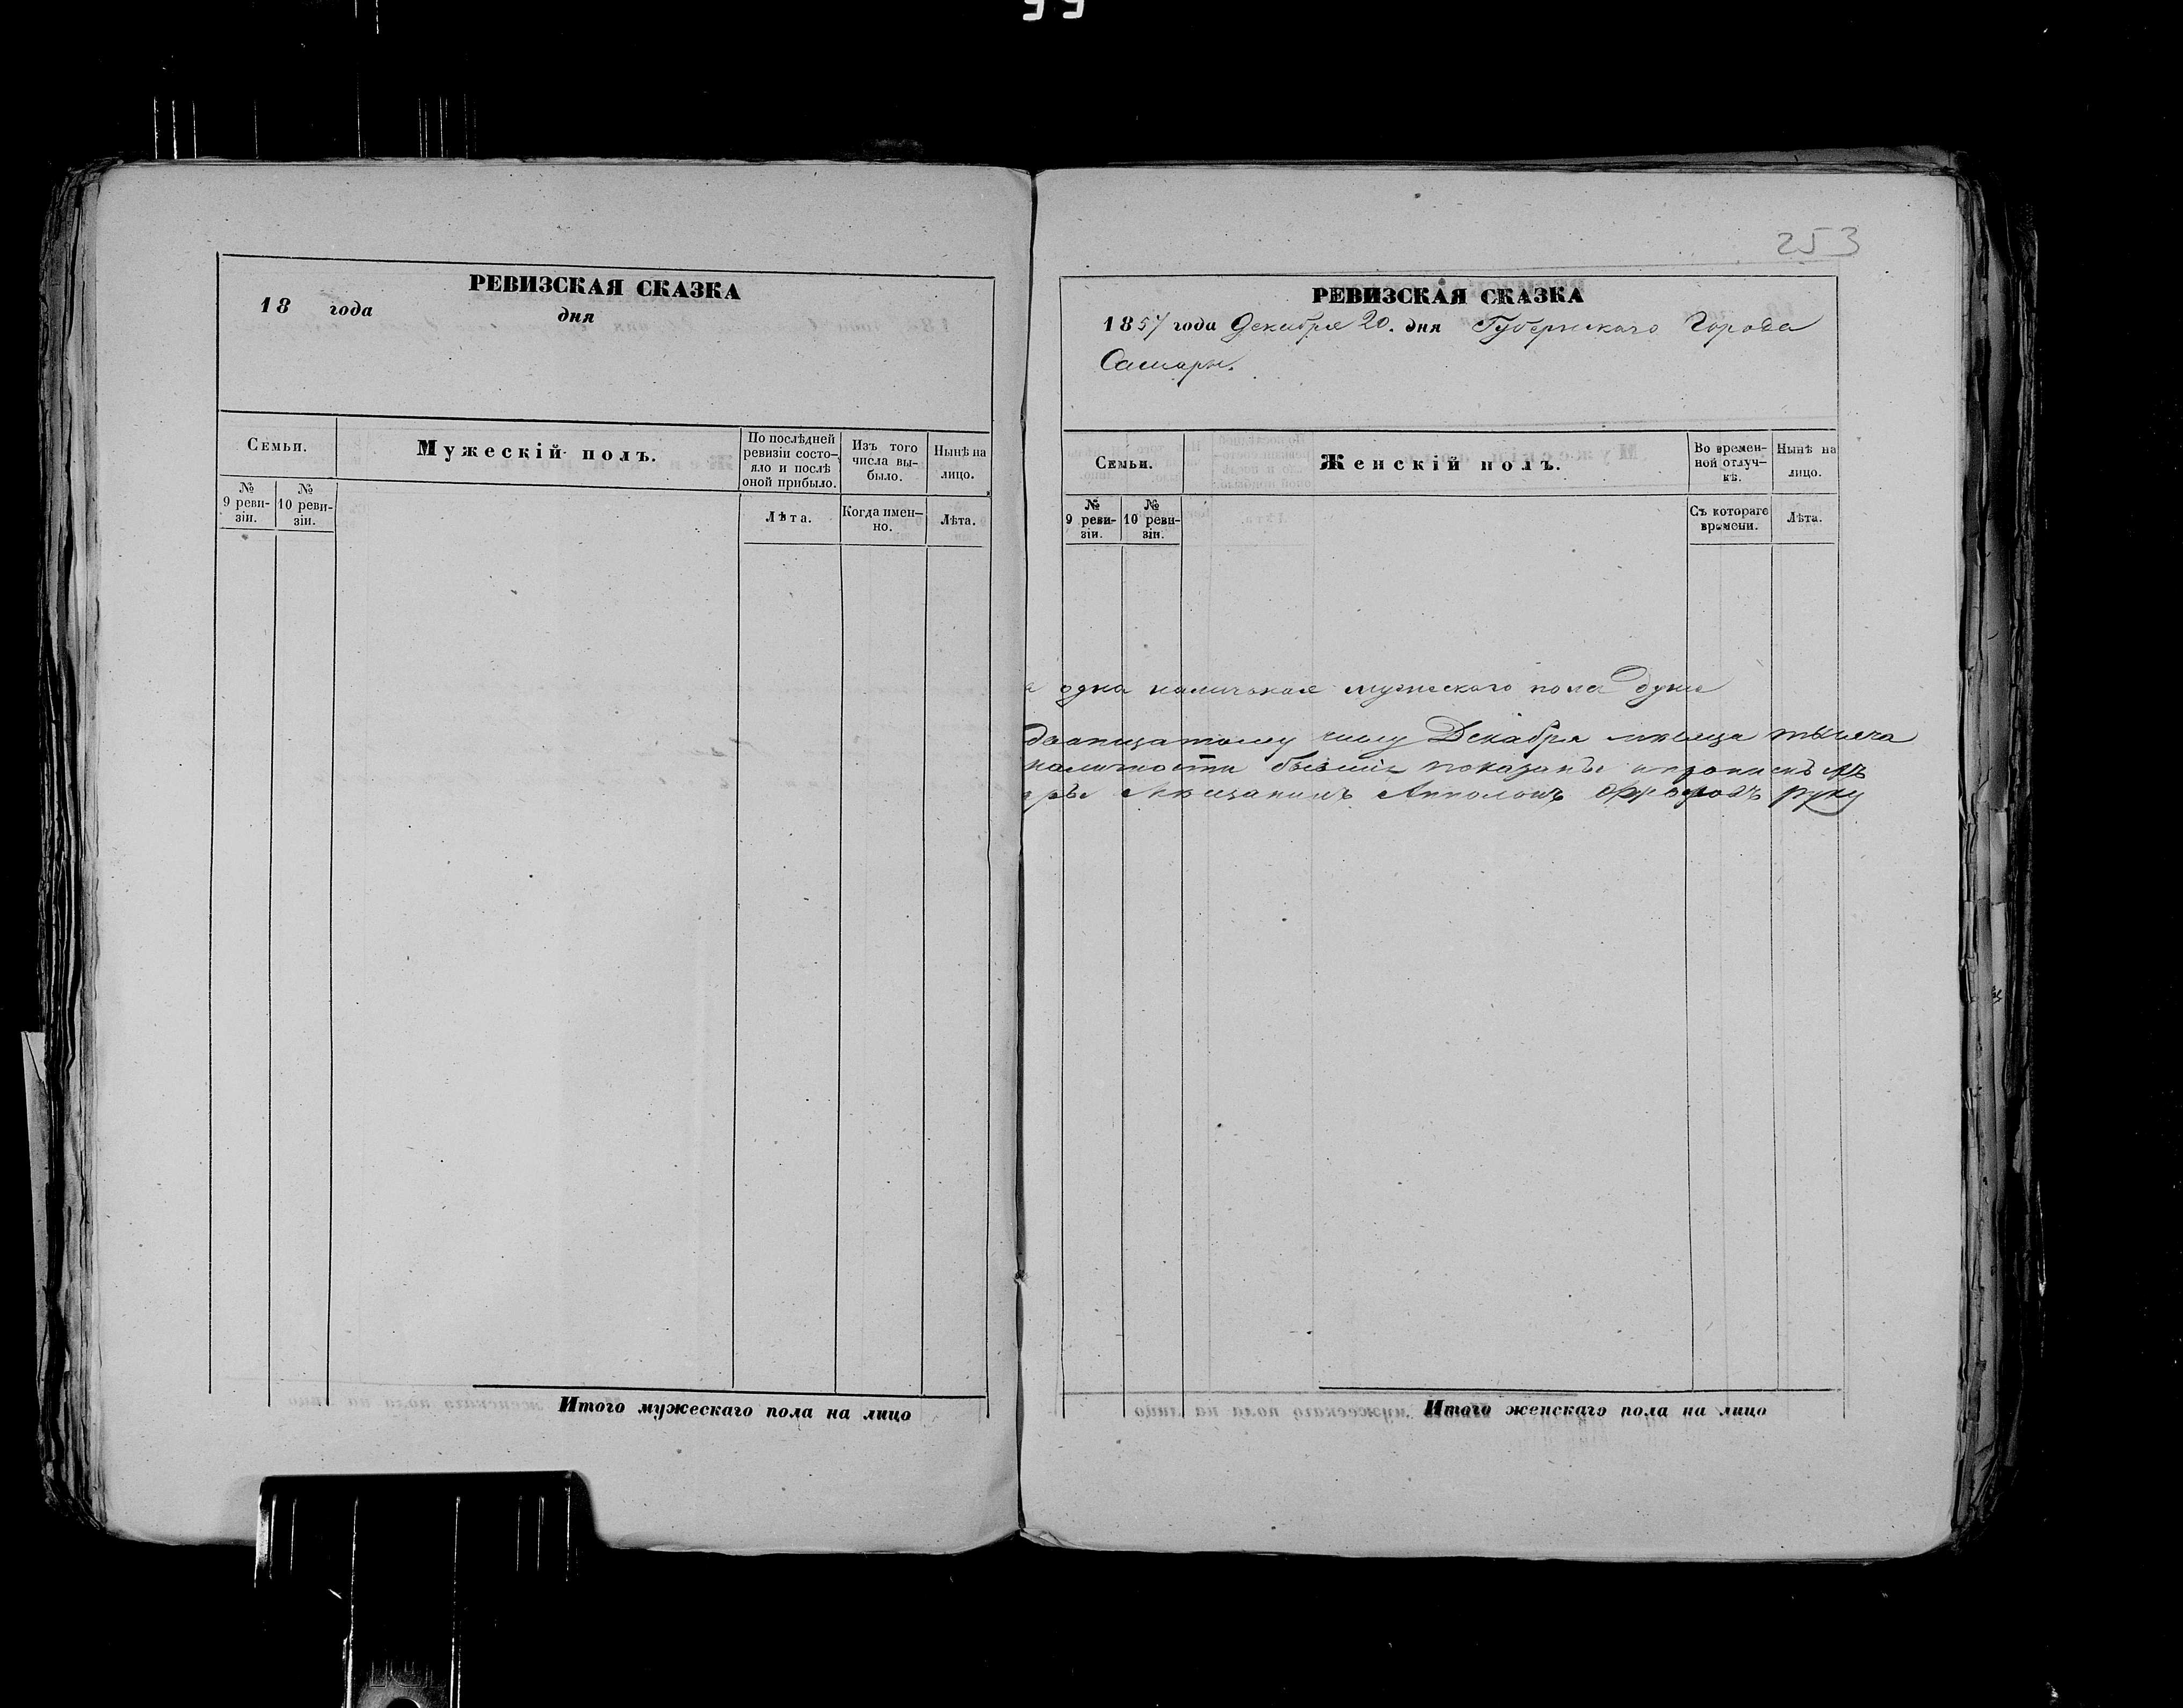 РЕВИЗСКАЯ СКАЗКА
18 года дня
Семьи.
Мужескій полъ.
По послѣдней ревизіи состо-
яло и послѣ
оной прибыло.
Изъ того
числа вы-
было.
Нынѣ на
лицо.
№
9 реви-
зіи.
№
10 реви-
зіи.
Лѣта.
Когда имен-
но.
Лѣта.
Итого мужескаго пола на лицо
253
РЕВИЗСКАЯ СКАЗКА
1857 года Декабря 20. дня Губернскаго Города
Самары.
Семьи.
Женскій полъ.
Во времен-
ной отлуч-
кѣ.
Нынѣ на
лицо.
№
9 реви-
зіи.
№
10 реви-
зіи.
Съ котораго
времени.
Лѣта.
одна наличная мужескаго пола душа
двапцатому числу Декабря мѣсяца тысяча
наличности бывшіе показаны
Мещанинъ Апполонъ руку
Итого женскаго пола на лицо